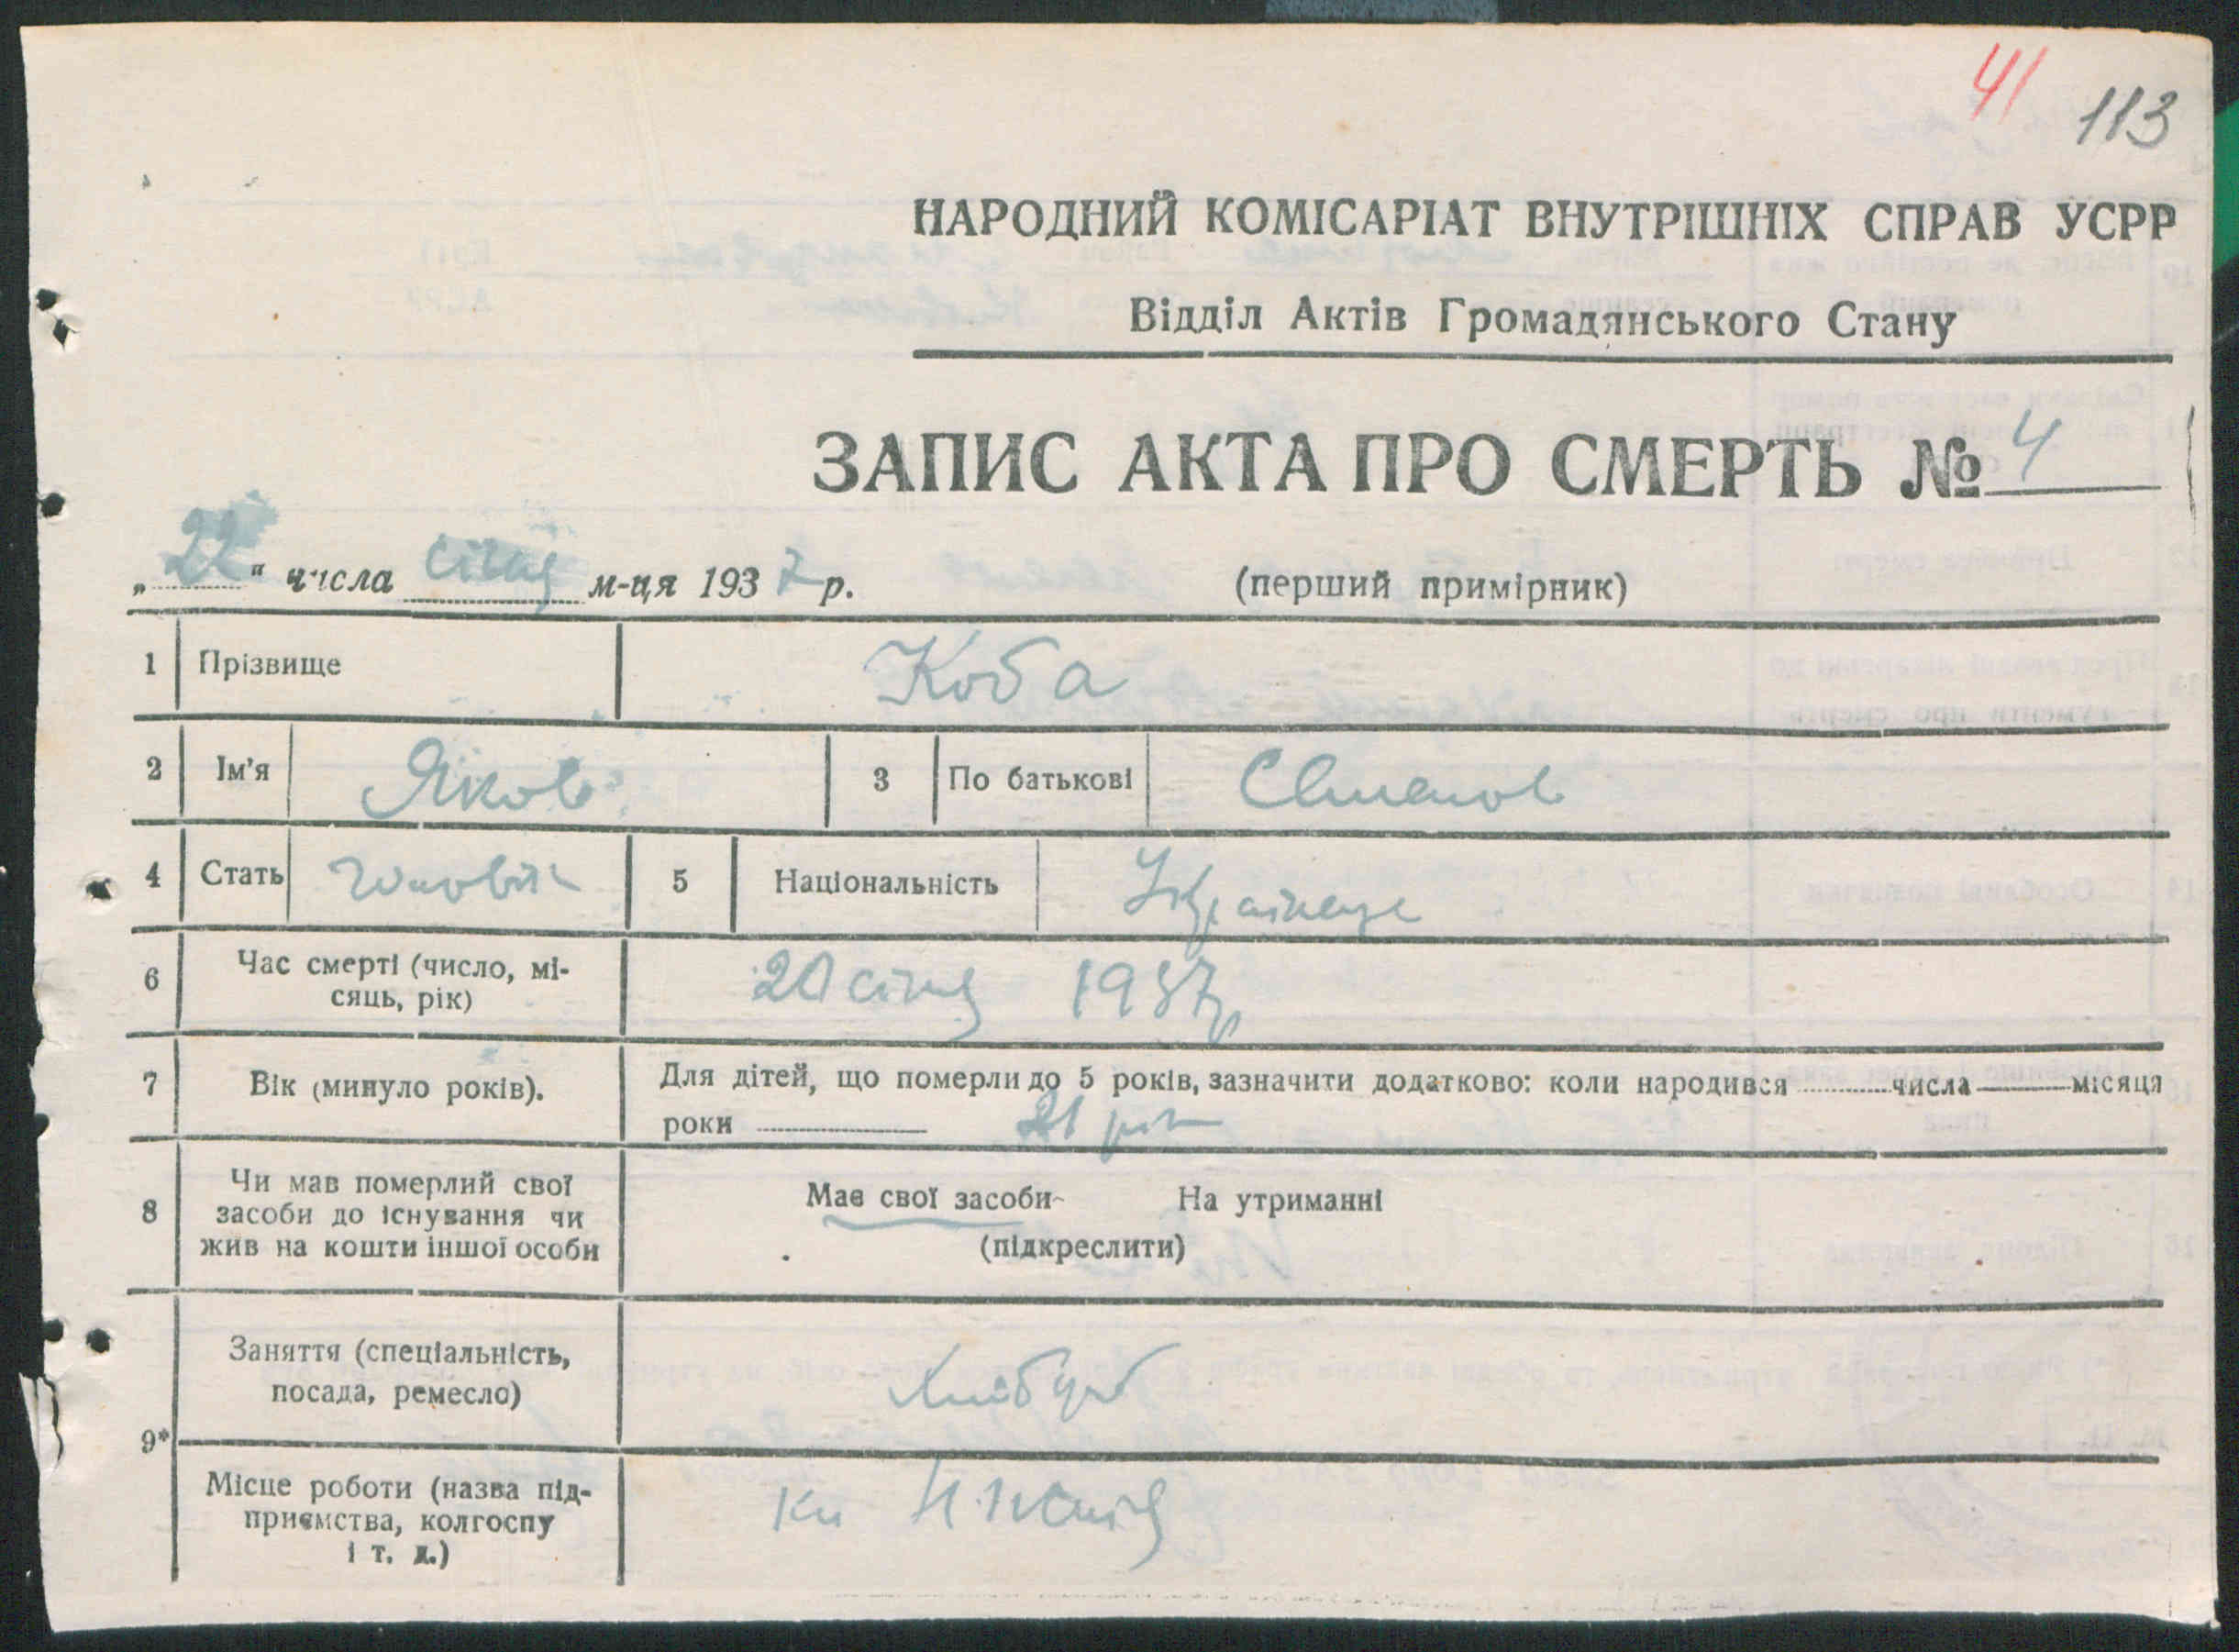 41 113
НАРОДНИЙ КОМІСАРІАТ ВНУТРІШНІХ СПРАВ УСРР
Відділ Актів Громадянського Стану
ЗАПИС АКТА ПРО СМЕРТЬ № 4
„22“ числа січня м-ця 1937 р. (перший примірник)
1 Прізвище Коба
2 Ім'я Яков 3 По батькові Степанов
4 Стать чоловік 5 Національність Українец
6 Час смерті (число, мі-
сяць, рік) 20 січня 1937р
7 Вік (минуло років). Для дітей, що померли до 5 років, зазначити додатково: коли народився числа місяця
роки 21 рік
8 Чи мав померлий свої
засоби до існування чи
жив на кошти іншої особи
Має свої засоби На утриманні
(підкреслити)
9* Заняття (спеціальність,
посада, ремесло) Хлібороб
Місце роботи (назва під-
приємства, колгоспу
і т. д.)